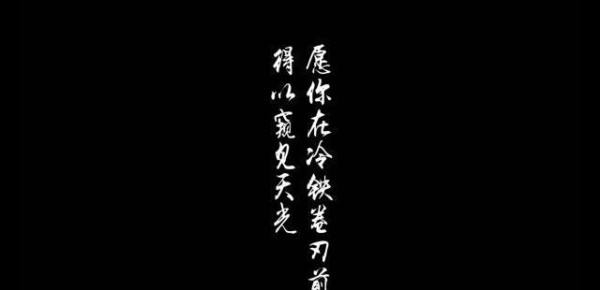 愿你在冷铁卷刃前
得以窥见天光